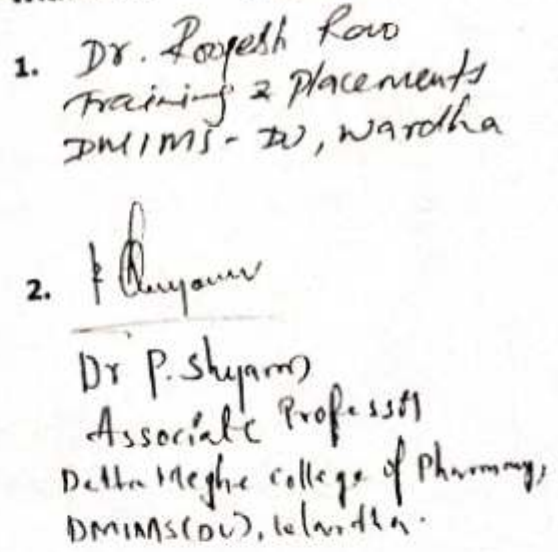 1. Dr. Roogesh Rao
Training & Placements
DMIMS - DU, Wardha
2.
Dr P. Shyam
Associate Professor
Datta Meghe college of Pharmacy,
DMIMS(DU), Wardha.